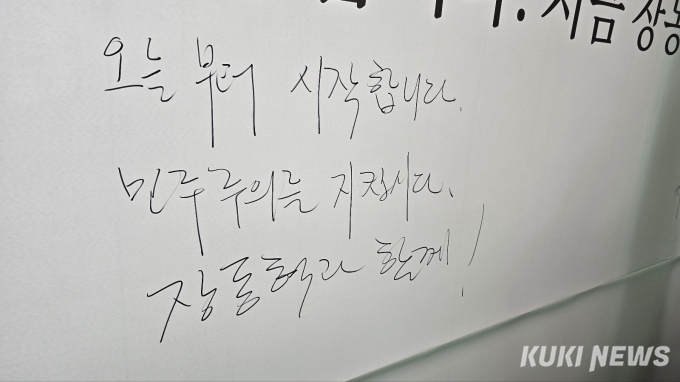 지금 상
오늘 부터 시작합니다.
민주주의를 지킵시다.
장동혁과 함께!
KUKI NEWS